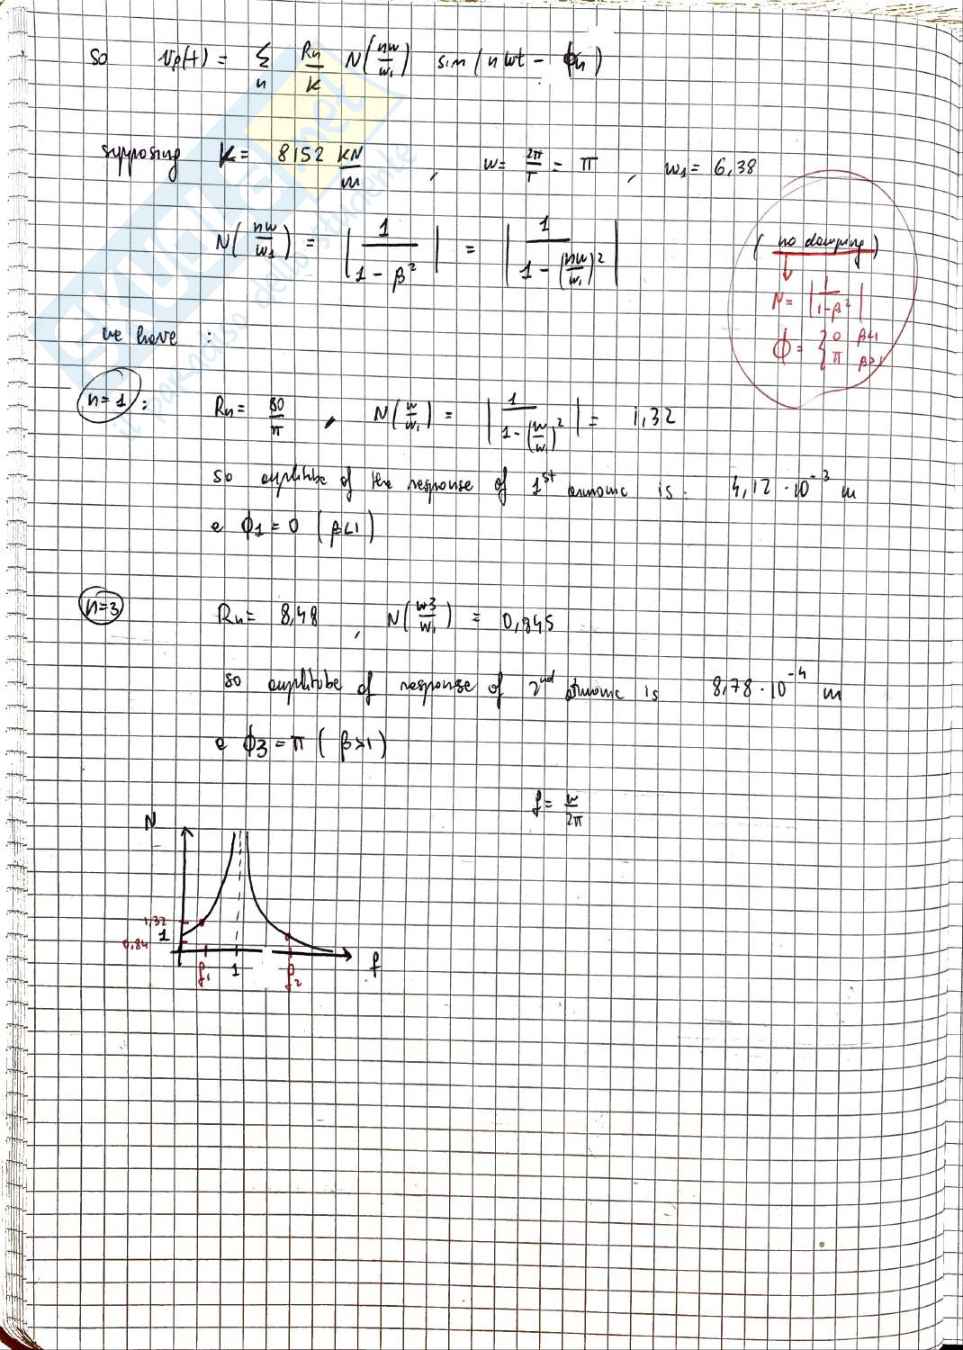 so Vp(t) = Σn Rn/K N(nw/w1) sin(nwt - ϕn)
supposing K = 8152 KN/m , w = 2π/T = π , w1 = 6,38
N(nw/w1) = |1/(1 - β²)| = |1/(1 - (nw/w1)²)|
(no damping)
↓
N = |1/(1-β²)|
ϕ = { 0 β<1
π β>1
we have :
n=1 : Rn = 80/π , N(w/w1) = |1/(1-(w/w1)²)| = 1,32
so amplitube of the response of 1st armonic is 4,12 · 10^-3 m
e ϕ1 = 0 (β<1)
n=3 Rn = 8,48 , N(w3/w1) = 0,845
so amplitube of response of 2nd armonic is 8,78 · 10^-4 m
e ϕ3 = π (β>1)
f = w/2π
N
1,32
1
0,84
f1 1 f2 f
skuola.net
il paradiso dello studente